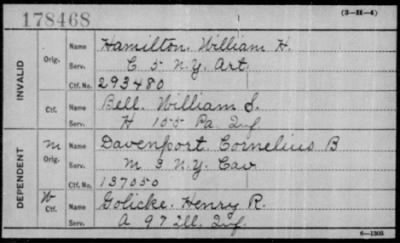 178468
(3-H-4)
INVALID
Orig.
Name Hamilton. William H.
Serv. C 5 N.Y. Art.
Ctf. No. 293480
Ctf.
Name Bell. William S.
Serv. H 155 Pa. Inf
DEPENDENT
M Orig.
Name Davenport Cornelius B
Serv. M 3 N.Y. Cav
Ctf. No. 137050
W Ctf.
Name Golicke. Henry R.
Serv. A 97 Ill. Inf.
6-1308